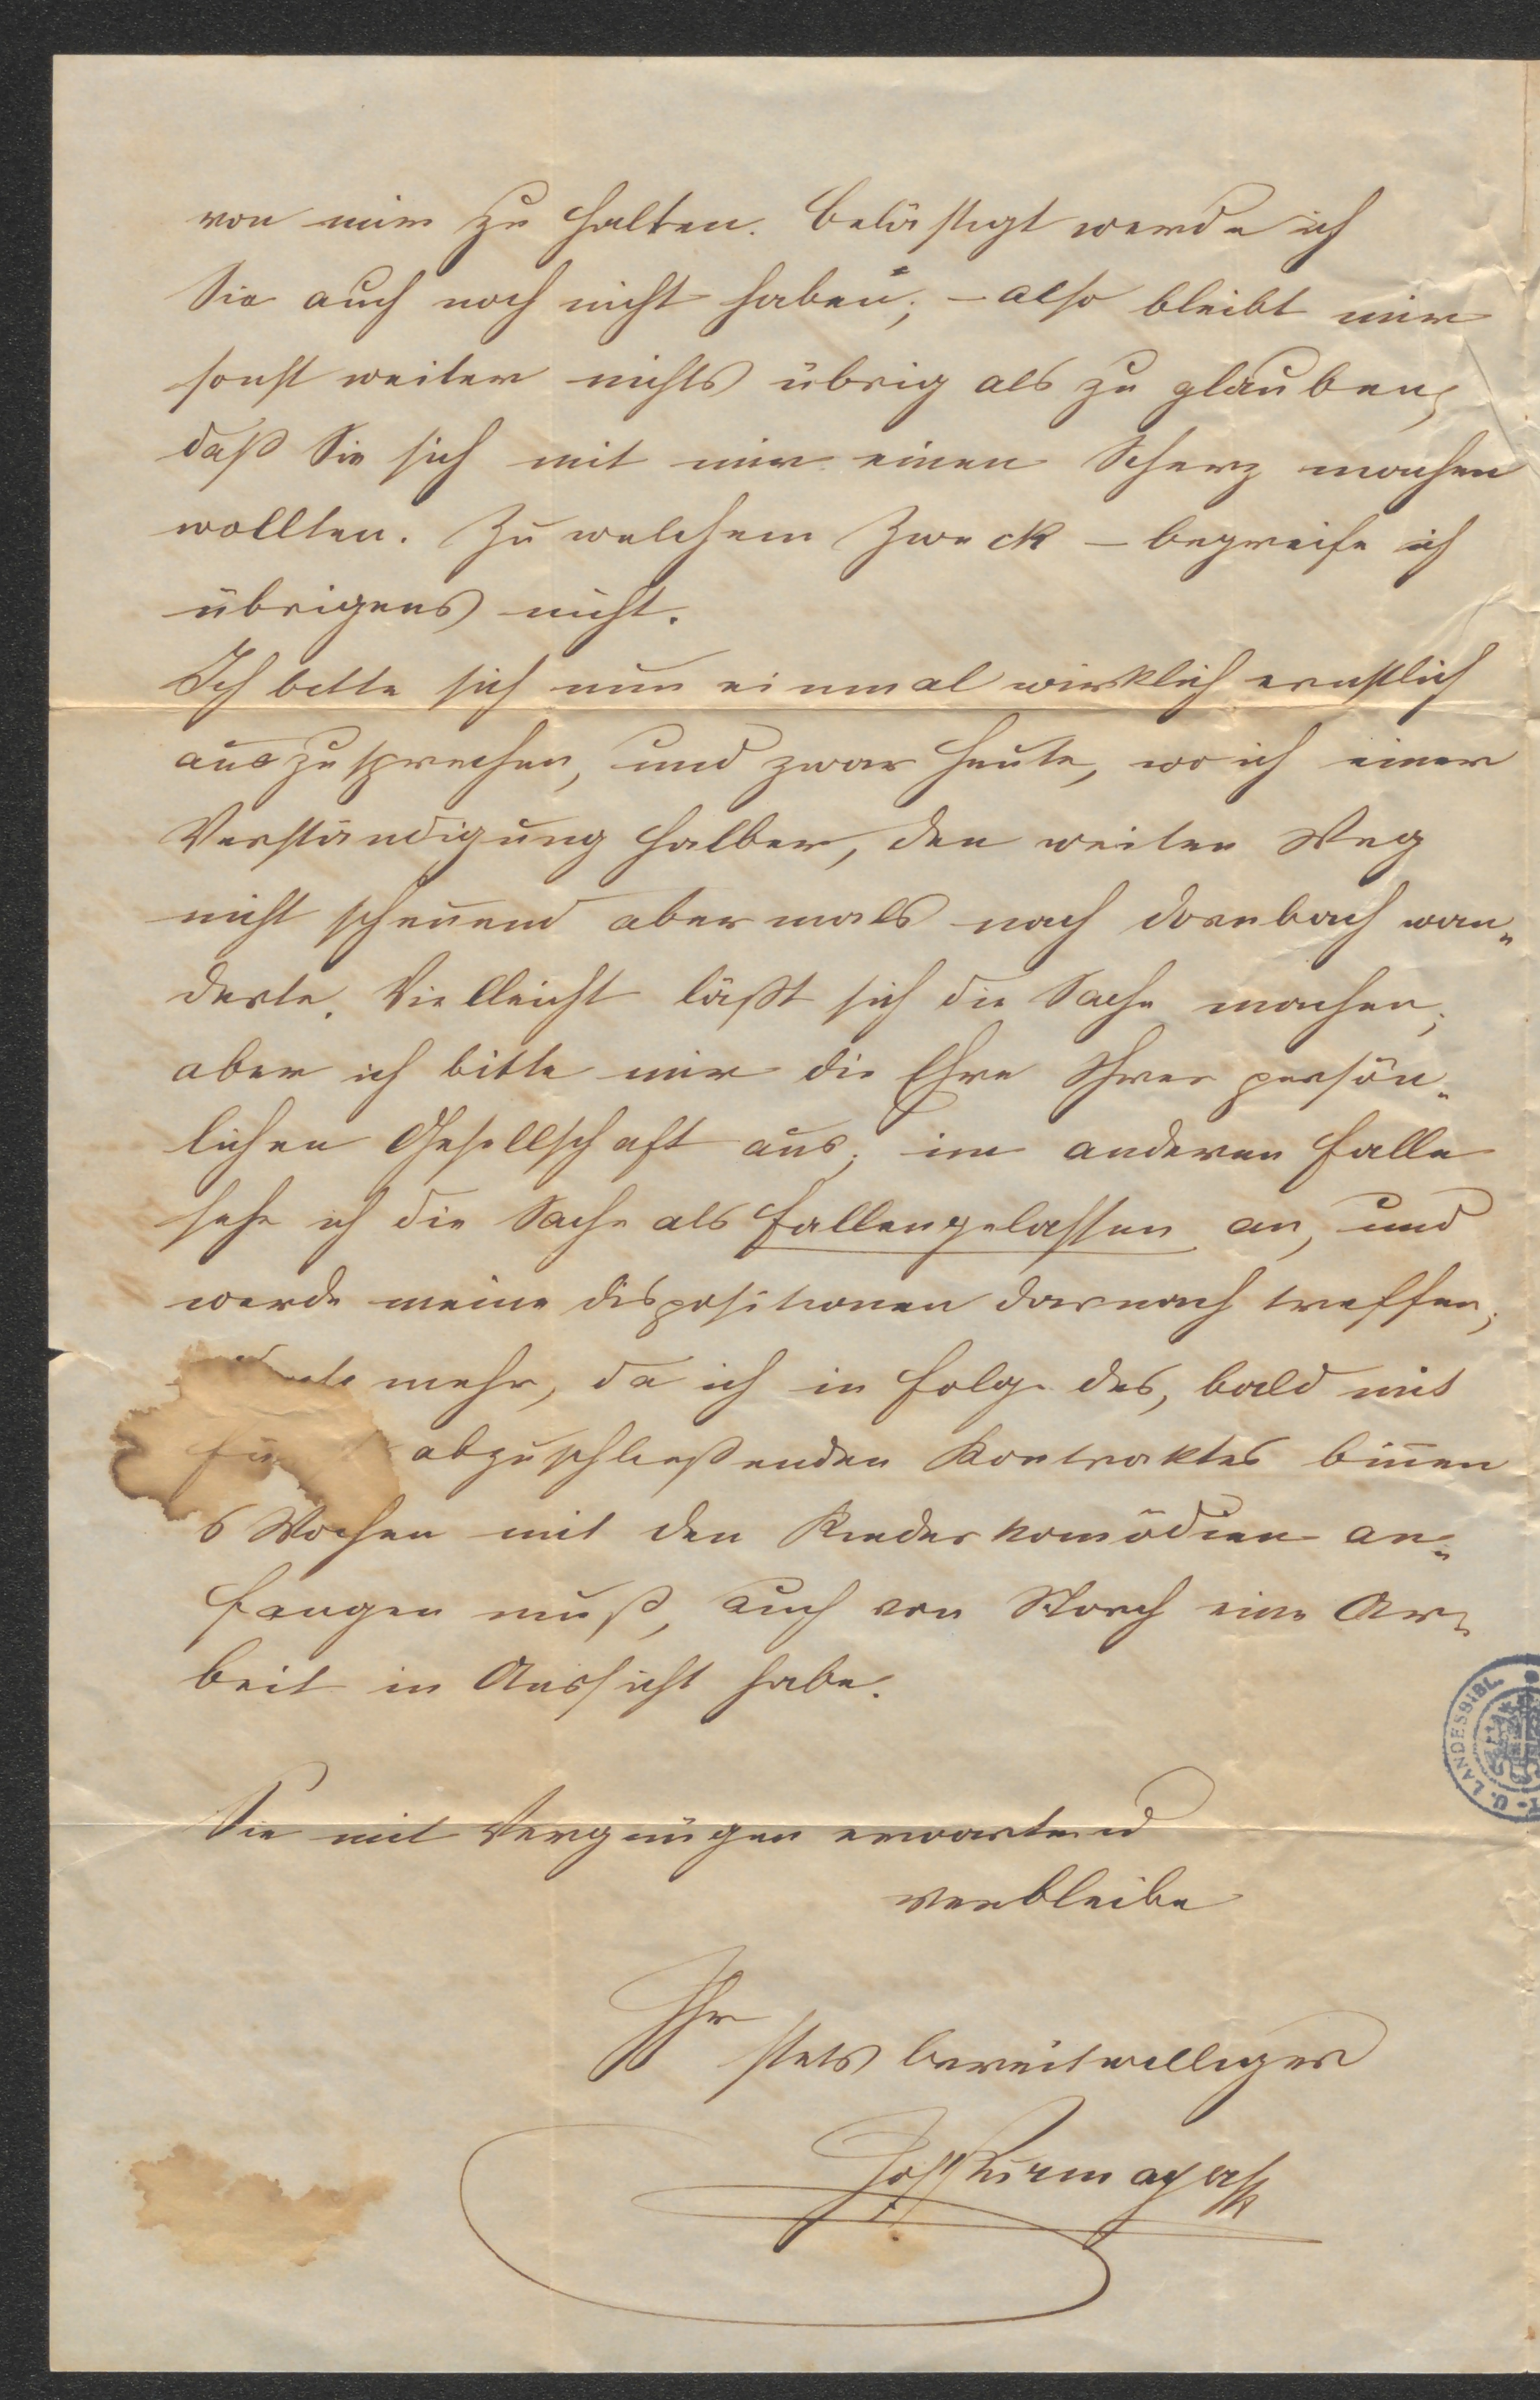 von mir zu halten. Belästigt werde ich
Sie auch noch nicht haben; – also bleibt mir
sonst weiter nichts übrig als zu glauben,
daß Sie sich mit mir einen Scherz machen
wollten. Zu welchem Zweck – begreife ich
übrigens nicht.
Ich bitte sich nun einmal wirklich ernstlich
auszusprechen, und zwar heute, wo ich einer
Verständigung halber, den weiten Weg
nicht scheuend abermals nach Dornbach wan„
derte. Vielleicht läßt sich die Sache machen;
aber ich bitte mir die Ehre Ihrer persön„
lichen Gesellschaft aus; im anderen Falle
sehe ich die Sache als fallengelassen an, und
werde meine Dispositionen darnach treffen;
mehr, da ich in Folge des, bald mit
abzuschließenden Kontraktes binnen
6 Wochen mit den Kinderkomödien an„
fangen muß, auch von Storch eine Ar„
beit in Aussicht habe.
Sie mit Vergnügen erwartend
verbleibe
Ihr
stets bereitwilliger
LANDESBIBL.